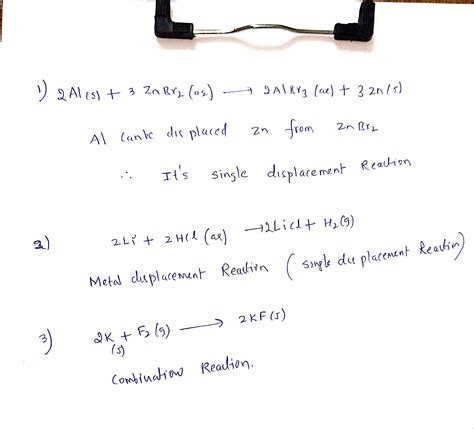 1) 2Al(s) + 3 ZnBr₂ (aq) ⟶ 2AlBr₃ (aq) + 3 Zn(s)
Al displaced Zn from ZnBr₂
∴ It's single displacement Reaction
2) 2Li + 2HCl (aq) → 2LiCl + H₂(g)
Metal displacement Reaction (single displacement Reaction)
3) 2K(s) + F₂(g) ⟶ 2KF(s)
Combination Reaction.